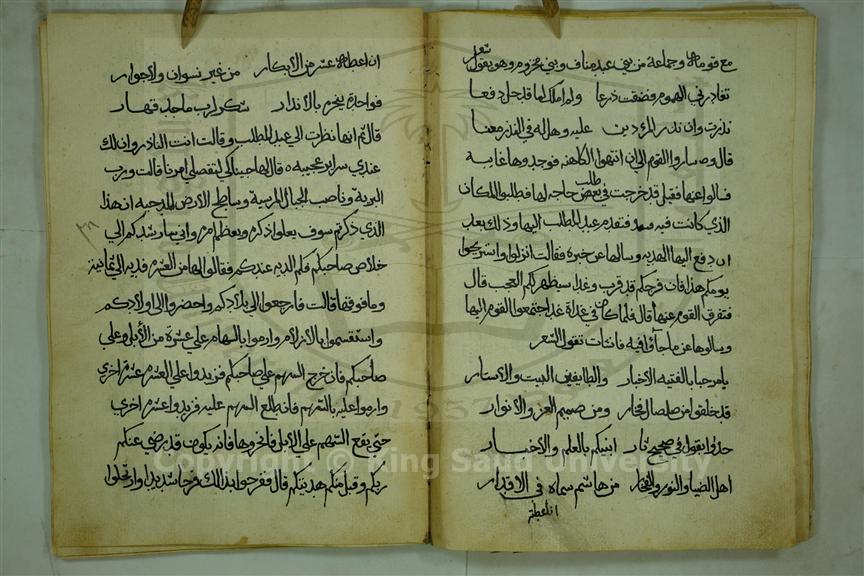 مع قومه وجماعة من بني عبد مناف وبني مخزوم وهو يقول شعر
تغادرني الهموم وضقت ذرعا ولم املك لما قد حل دفعا
نذرت وان نذر المرء دين عليه وهل له في النذر معنا
قال وصاروا القوم الى ان انتهوا الى الكاهنه فوجدوها غايبه
فسالوا عنها فقيل قد خرجت في طلب بعض حاجه لها فطلبوا المكان
الذي كانت فيه فتقدم عبد المطلب اليها وذلك بعد
ان دفع اليها الهديه وسالها عن خبره فقالت انزلوا واستريحوا
يومكم هذا فان فرجكم قد قرب وغدا سيظهر لكم العجب قال
فتفرق القوم عنها قال فلما كان في غداة غدا اجتمعوا القوم اليها
وسالوها عن ما جاؤا فيه فانشات تقول الشعر
يا مرحبا بالفتيه الاخيار والطايفين البيت والاستار
قد خلقوا من صلصال فخار ومن صميم العز والانوار
خذوا بقولي في صحيح انبيكم بالعلم والاخبار
اهل الضيا والنور والفخار من هاشم سماه في الاقدار
ان اعطاه عشر من الابكار من غير نسوان ولا جوار
فواحد ينحر بالانذار شكرا لرب ماجد قهار
قال ثم انها نظرت الى عبد المطلب وقالت انت الناذر وان لك
عندي سراير عجيبه قال لها جيناك لتفصلي امرنا قالت ورب
البرية وناصب الجبال المرسية وساطح الارض المدحيه ان هذا
الذي ذكرتم سوف يعلوا ذكره ويعظم امره واني سارشدكم الى
خلاص صاحبكم فكم الديه عندكم فقالوا لها من العشره فديه الى ثمانية
وما فوقها قالت فارجعوا الى بلادكم واحضروا الى اولادكم
واستقسموا بالازلام وارموا بالسهام على عشرة من الابل وعلى
صاحبكم فان خرج السهم على صاحبكم فزيدوا على العشره عشره اخرى
وارموا عليه بالسهم فان طلع السهم عليه فزيدوا عشره اخرى
حتى يقع السهم على الابل فانحروها فانه يكون قد رضي عنكم
ربكم وقبل منكم هديتكم قال ففرحوا بذالك فرحا شديدا وارتحلوا
Copyright © King Saud University
1957